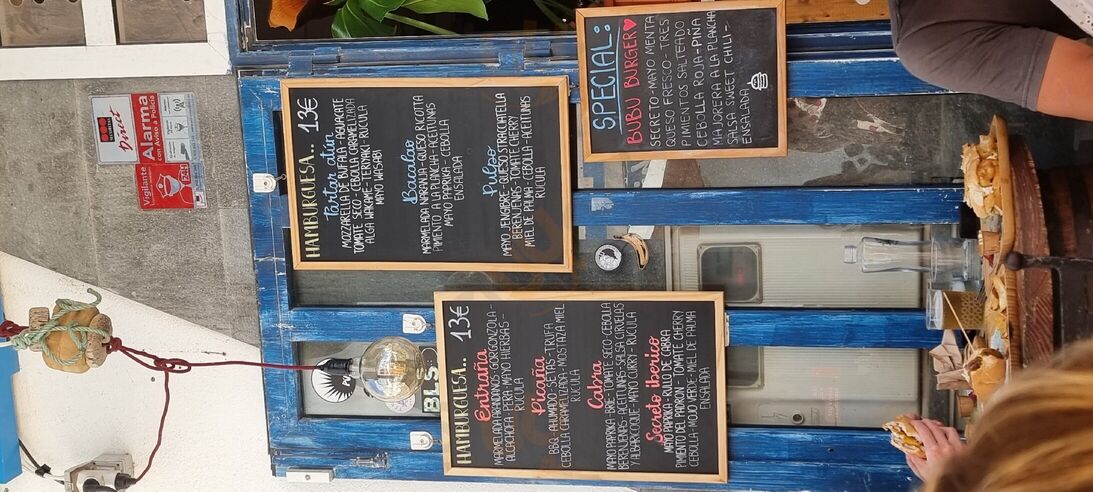 HAMBURGUESA.. 13€
Tartar atún
MOZZARELLA DE BUFALA - AGUACATE
TOMATE SECO - CEBOLLA CARAMELIZADA
ALGA WAKAME - TERIYAKI - RUCULA
MAYO WASABI
Bacalao
MARMELADA NARANJA - QUESO RICOTTA
PIMIENTO A LA PLANCHA - ACEITUNAS
MAYO PAPRIKA - CEBOLLA
ENSALADA
Pulpo
MAYO JENGIBRE - QUESO STRACCIATELLA
BERENJENAS - TOMATE CHERRY
MIEL DE PALMA - CEBOLLA - ACEITUNAS
RUCULA
SPECIAL:
BUBU BURGER♥
SECRETO - MAYO MENTA
QUESO FRESCO - TRES
PIMIENTOS SALTEADO
CEBOLLA ROJA - PIÑA
MAJORERA A LA PLANCHA
SALSA SWEET CHILI -
ENSALADA
HAMBURGUESA.. 13€
Entraña
MARMELADA ARANDANOS - GORGONZOLA -
ALCACHOFA - PERA - MAYO HIERBAS -
RUCULA
Picaña
BBQ - AHUMADO - SETAS - TRUFA
CEBOLLA CARAMELIZADA - MOSTAZA MIEL
RUCULA
Cabra
MAYO PAPRIKA - BRIE - TOMATE SECO - CEBOLLA
BERENJENAS - ACEITUNAS - SALSA CIRUELAS
Y ALBARICOQUE - MAYO CURRY - RUCULA
Secreto iberico
MAYO PAPRIKA - RULO DE CABRA
PIMIENTO DEL PADRON - TOMATE CHERRY
CEBOLLA - MOJO VERDE - MIEL DE PALMA
ENSALADA
Direct
Alarma
con Aviso a Policía
Vigilante
24H